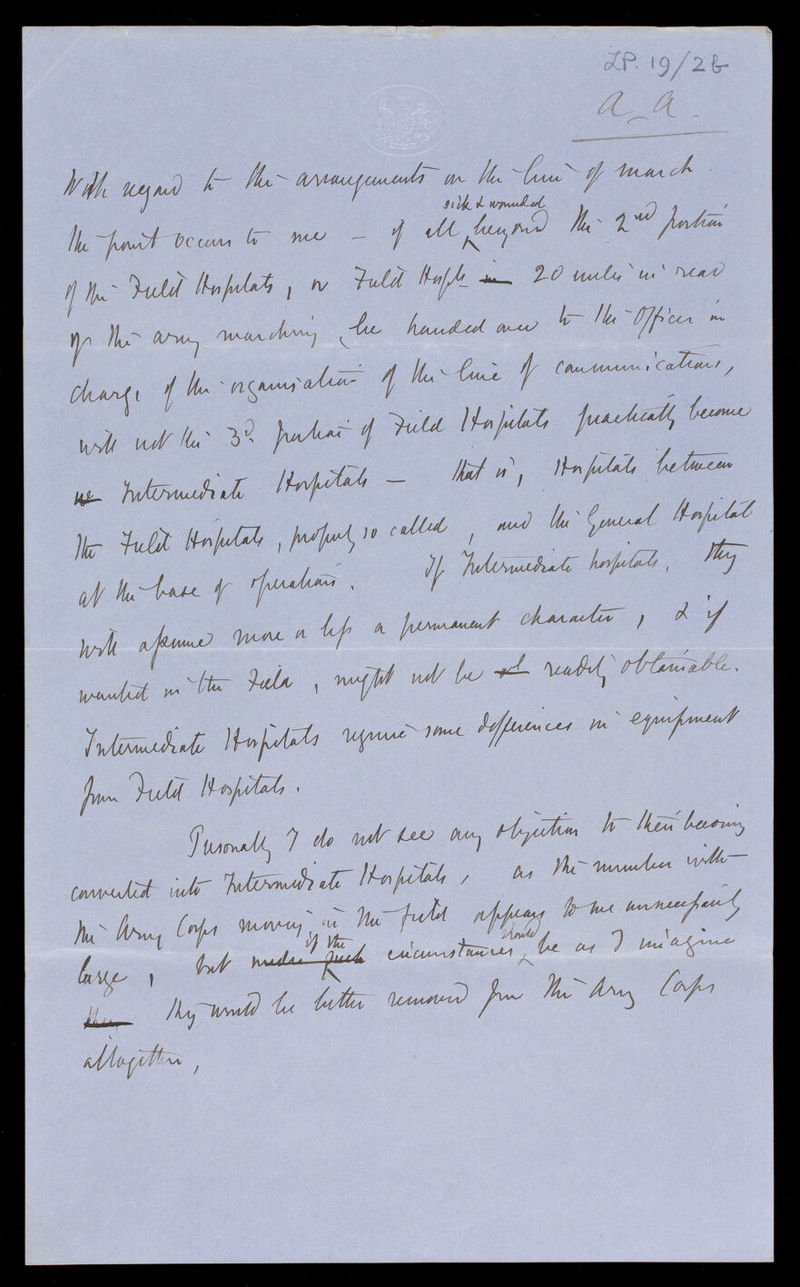 LP. 19/2b
A A.
With regard to the arrangements on the line of march
the point occurs to me – if all sick & wounded beyond the 2nd portion
of the Field Hospitals, or Field Hospls in 20 miles in rear
of the army marching, be handed over to the Officer in
charge of the organisation of the line of communications,
will not the 3d. portion of Field Hospitals practically become
Intermediate Hospitals – that is, Hospitals between
the Field Hospitals, properly so called, and the General Hospital
at the base of operations. If Intermediate hospitals, they
will assume more or less a permanent character, & if
wanted in the Field, might not be readily obtainable.
Intermediate Hospitals require some differences in equipment
from Field Hospitals.
Personally I do not see any objection to their becoming
converted into Intermediate Hospitals, as the number with
the Army Corps moving in the field appears to me unnecessarily
large, but under such if the circumstances should be as I imagine
they would be better removed from the Army Corps
altogether,